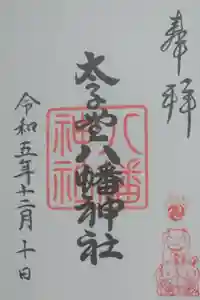 奉拝
太子堂八幡神社
八幡神社
令和五年十二月十日